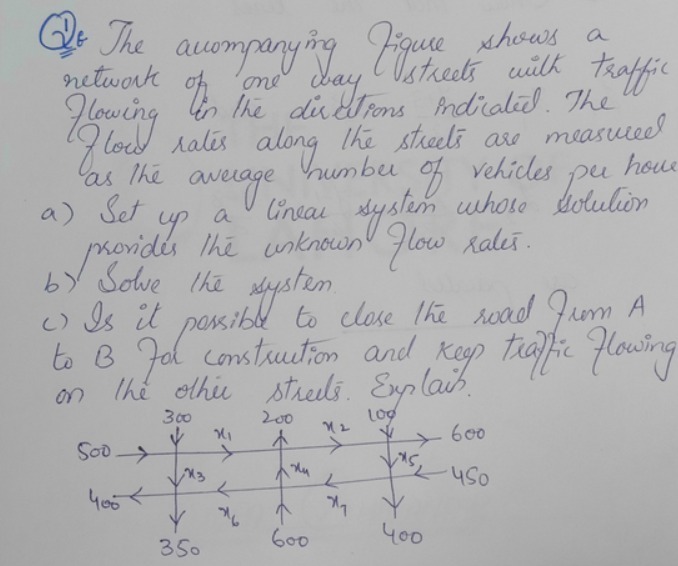 Q1: The accompanying figure shows a
network of one way streets with traffic
flowing in the directions indicated. The
flow rates along the streets are measured
as the average number of vehicles per hour
a) Set up a linear system whose solution
provides the unknown flow rates.
b) Solve the system.
c) Is it possible to close the road from A
to B for construction and keep traffic flowing
on the other streets. Explain.
300 200 100
500 x₁ x₂ 600
x₃ x₄ x₅ 450
400 x₆ x₇
350 600 400